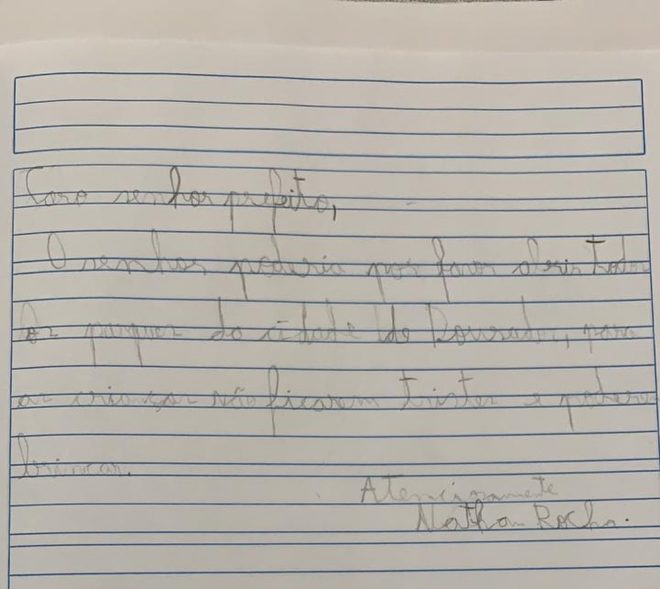 Caro senhor prefeito,
O senhor poderia por favor abrir todos
os parques da cidade de Dourados, para
as crianças não ficarem tristes e poderem
brincar.
Atenciosamente
Nathan Rocha.